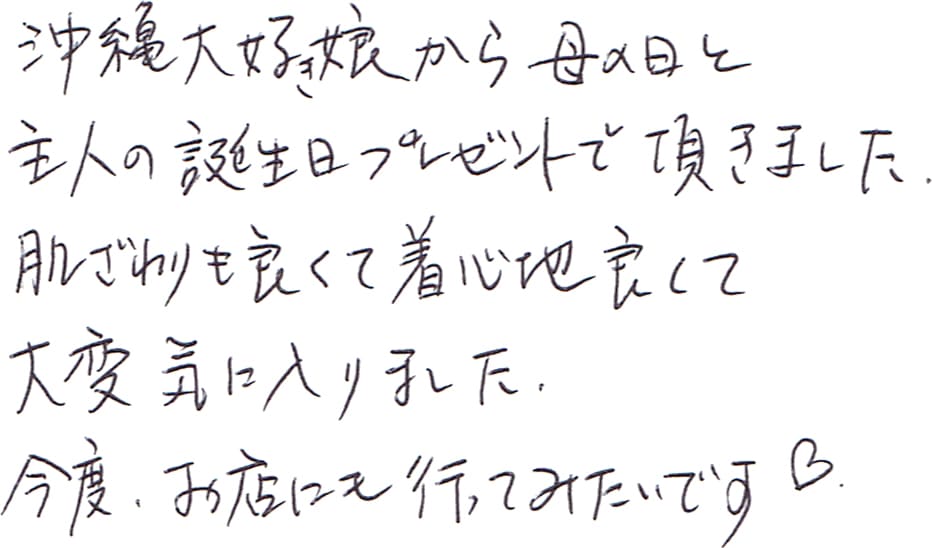 沖縄大好き娘から母の日と
主人の誕生日プレゼントで頂きました.
肌ざわりも良くて着心地良くて
大変気に入りました.
今度、お店にも行ってみたいです♡.